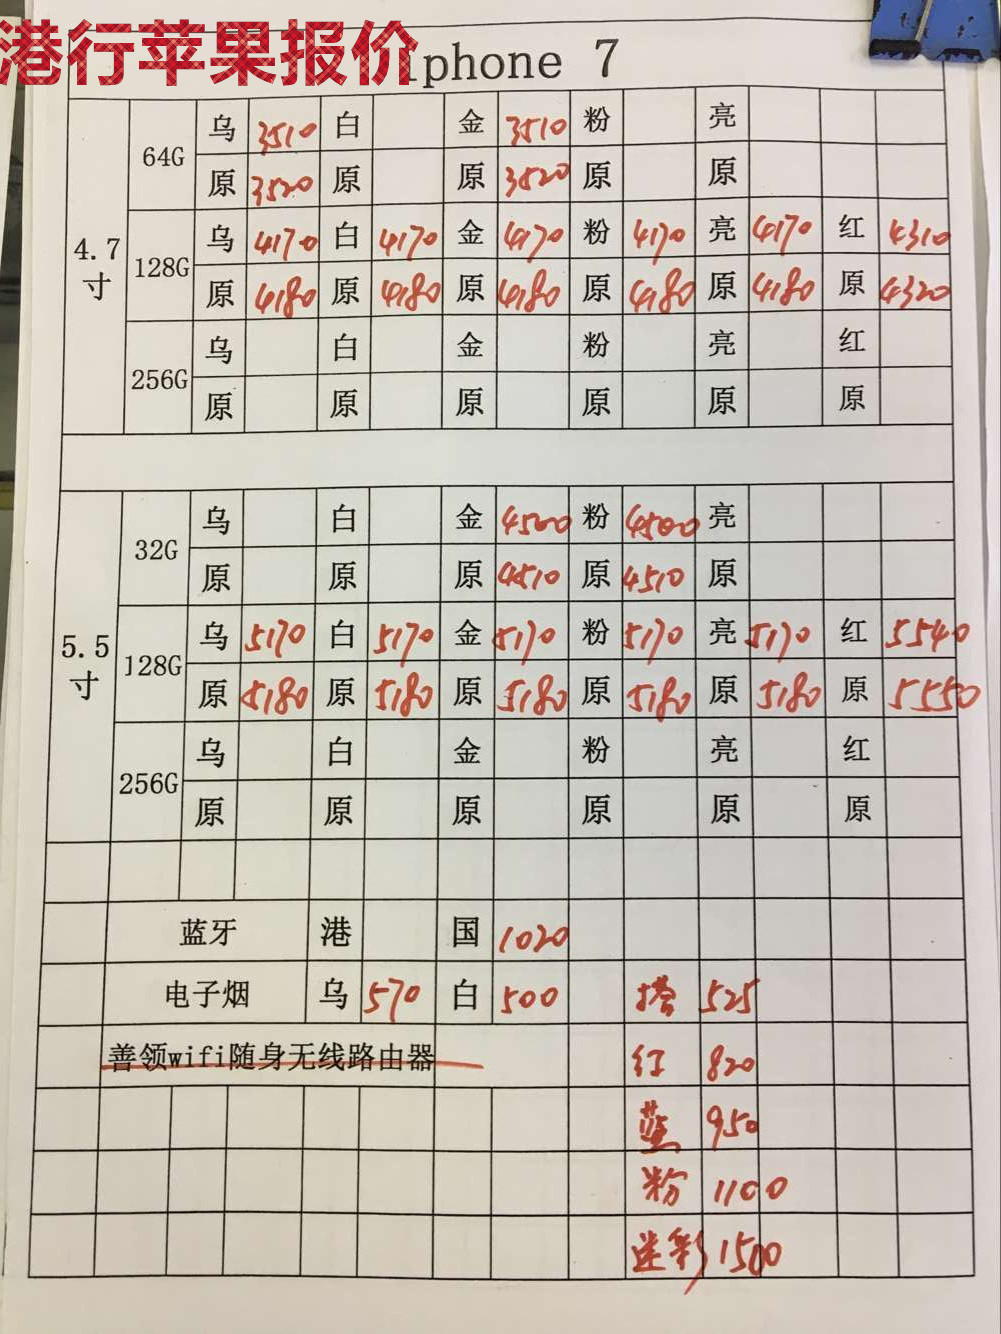 港行苹果报价
Iphone 7
4.7寸 64G 乌 3510 白 金 3510 粉 亮
原 3520 原 原 3520 原 原
128G 乌 4170 白 4170 金 4170 粉 4170 亮 4170 红 4310
原 4180 原 4180 原 4180 原 4180 原 4180 原 4320
256G 乌 白 金 粉 亮 红
原 原 原 原 原 原
5.5寸 32G 乌 白 金 4500 粉 4500 亮
原 原 原 4510 原 4510 原
128G 乌 5170 白 5170 金 5170 粉 5170 亮 5170 红 5540
原 5180 原 5180 原 5180 原 5180 原 5180 原 5550
256G 乌 白 金 粉 亮 红
原 原 原 原 原 原
蓝牙 港 国 1020
电子烟 乌 570 白 500 525
善领wifi随身无线路由器 红 820
蓝 950
粉 1100
迷彩 1500